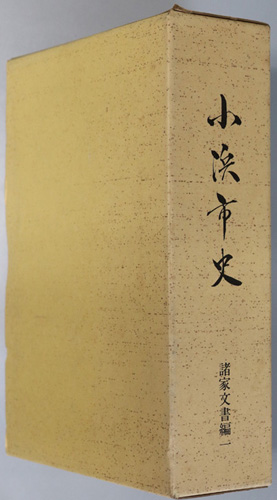 小浜市史
諸家文書編一